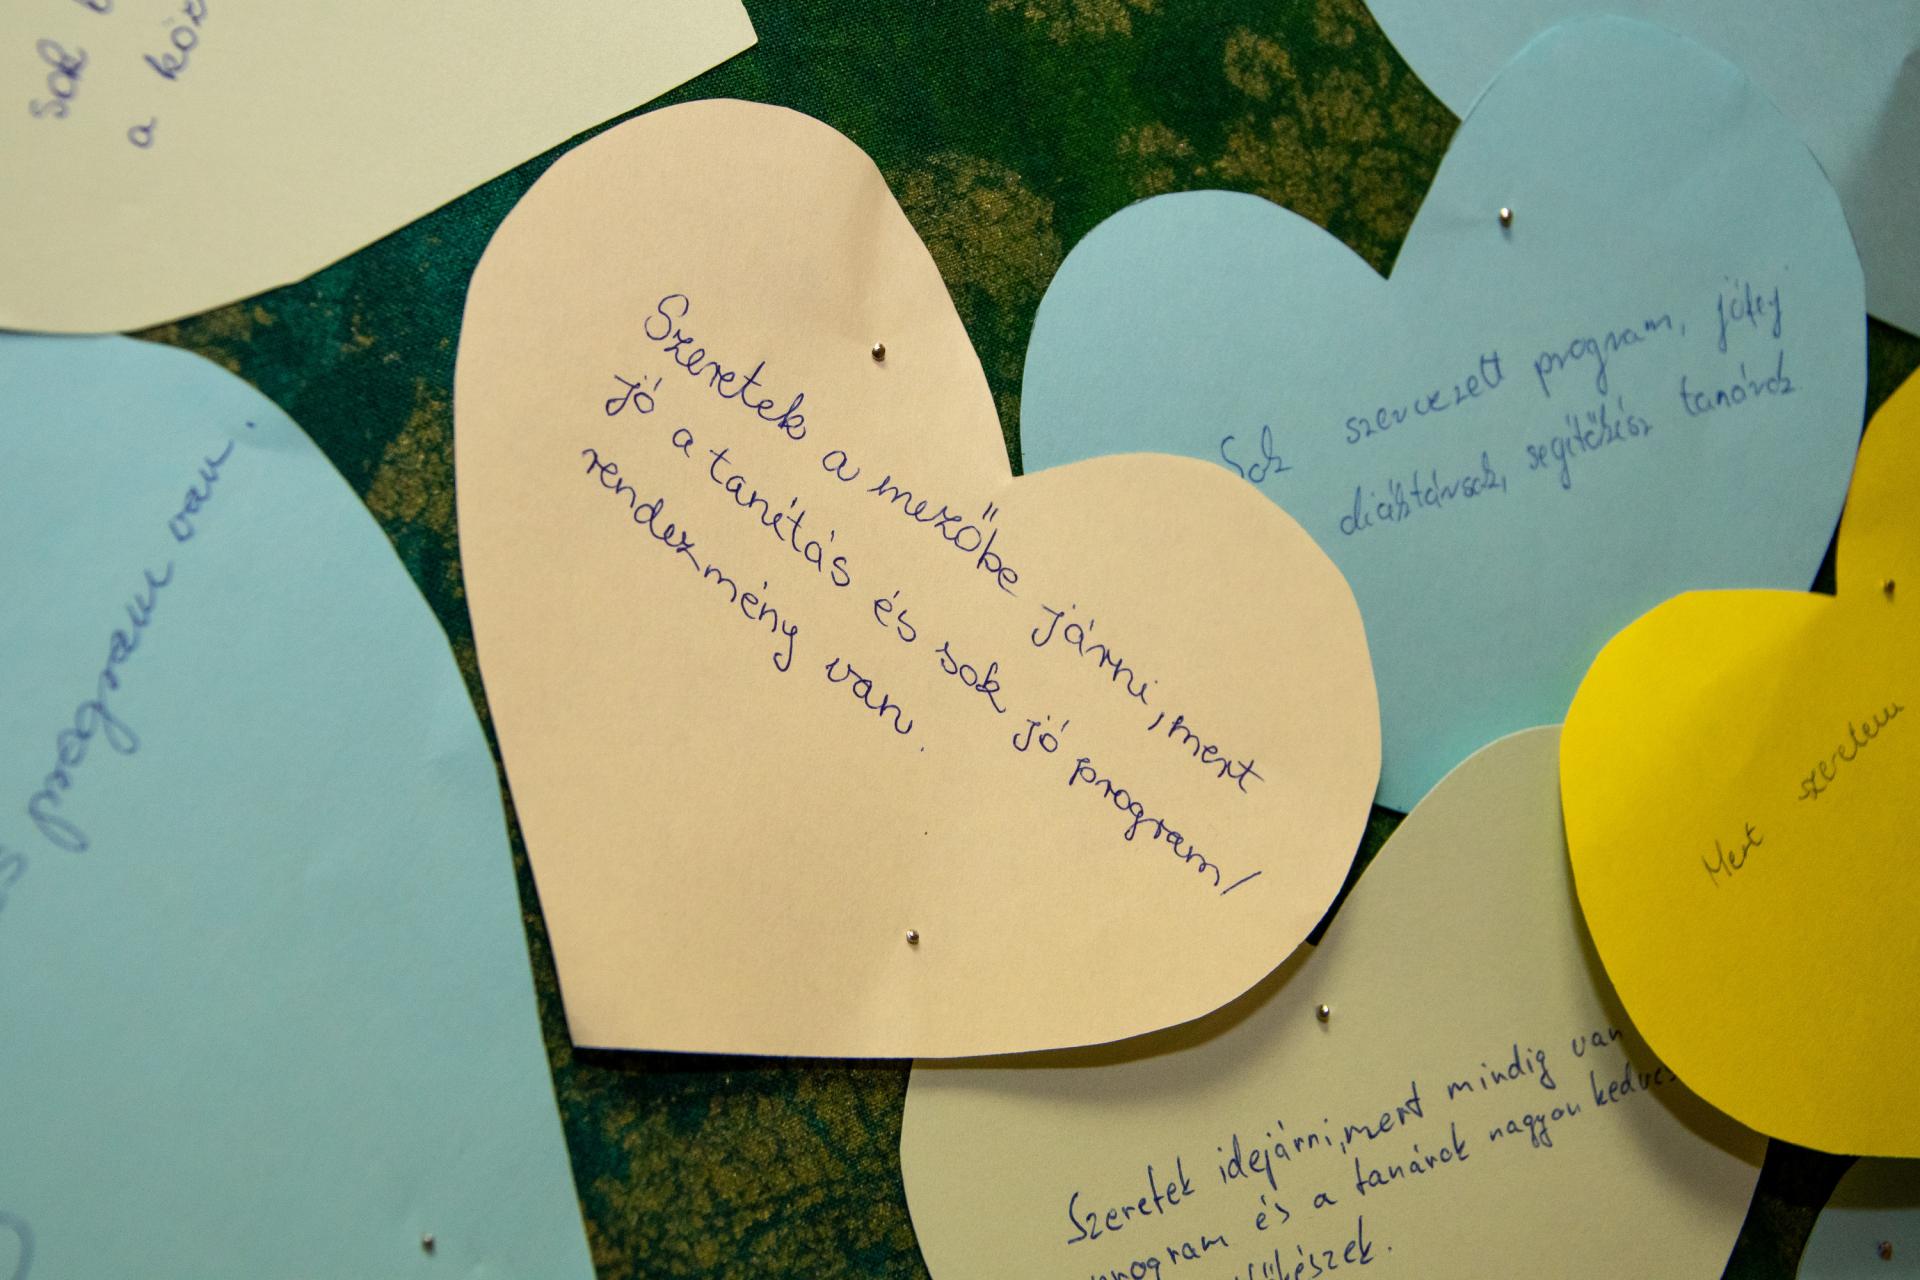 sok
a köz
program van.
Szeretek a mezőbe járni, mert
jó a tanítás és sok jó program/
rendezmény van.
Sok szervezett program, jófej
diáktársak, segítőkész tanárok
Mert szeretem
Szeretek idejárni, mert mindig van
program és a tanárok nagyon kedves